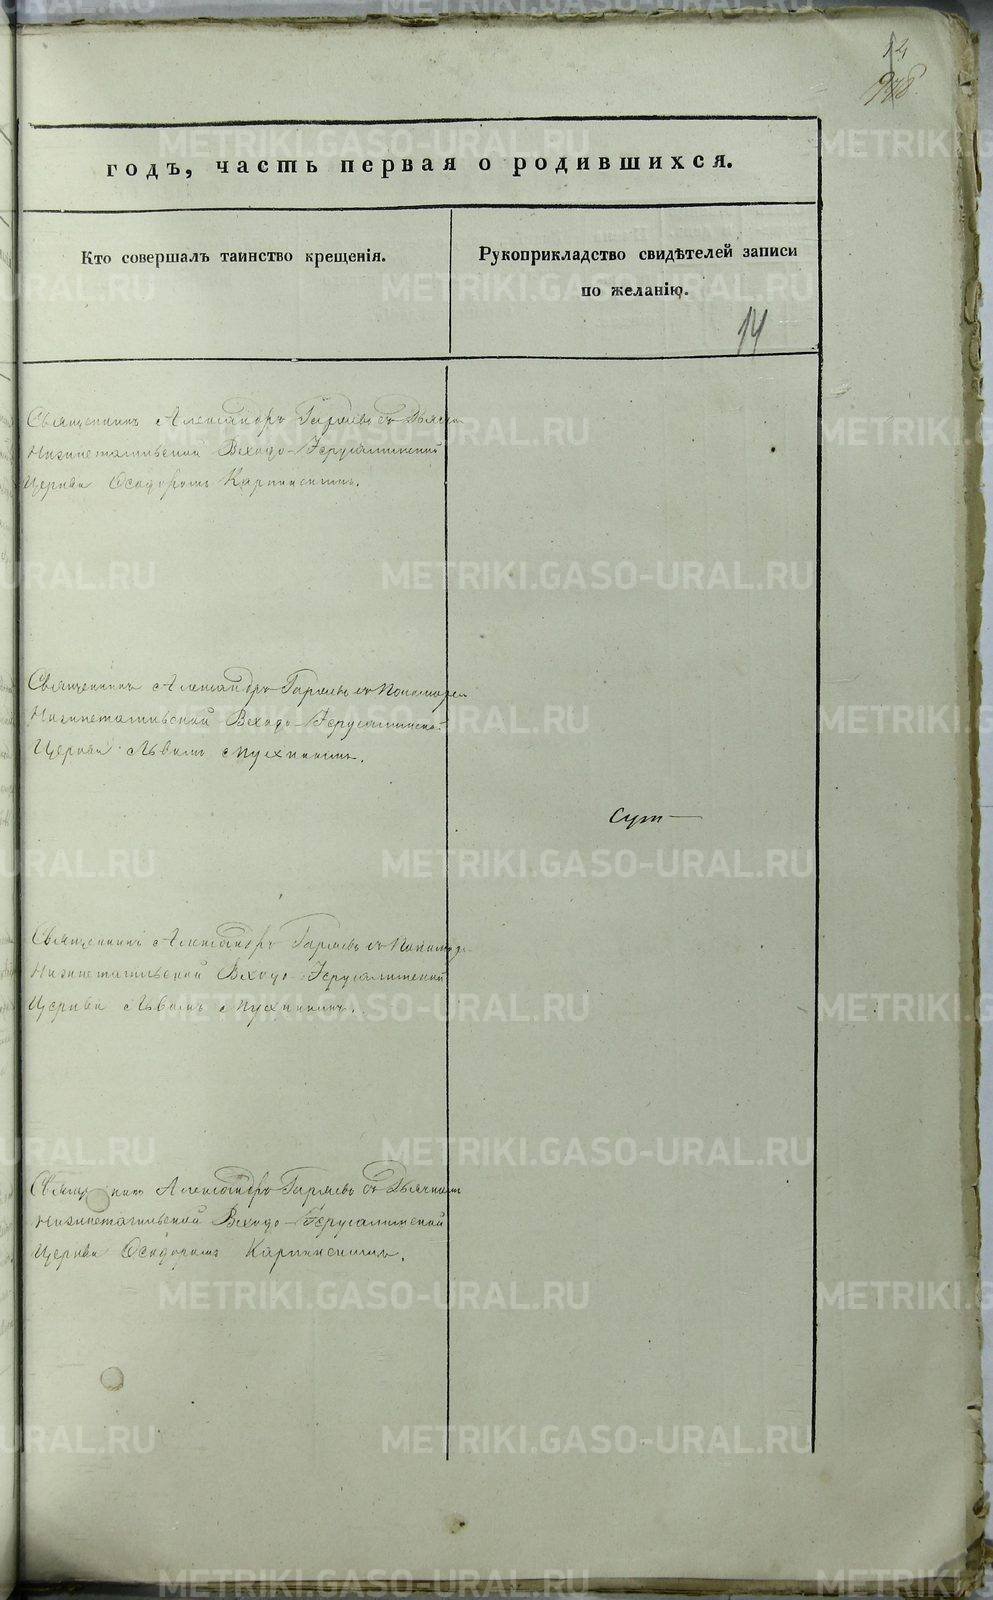 12
978
годъ, часть первая о родившихся.
Кто совершалъ таинство крещенія.
Рукоприкладство свидѣтелей записи
по желанію.
14
Священникъ Александръ Гаряевъ съ Дьячко
Нижнетагильской Входо-Іерусалимской
Церкви Ѳеодоромъ Карпинскимъ.
Священникъ Александръ Гаряевъ съ Пономарем
Нижнетагильской Входо-Іерусалимской
Церкви Львомъ Мухинымъ.
Сут
Священникъ Александръ Гаряевъ съ
Нижнетагильской Входо-Іерусалимской
Церкви Львомъ Мухинымъ.
Священникъ Александръ Гаряевъ съ Дьячкомъ
Нижнетагильской Входо-Іерусалимской
Церкви Ѳеодоромъ Карпинскимъ.
METRIKI.GASO-URAL.RU